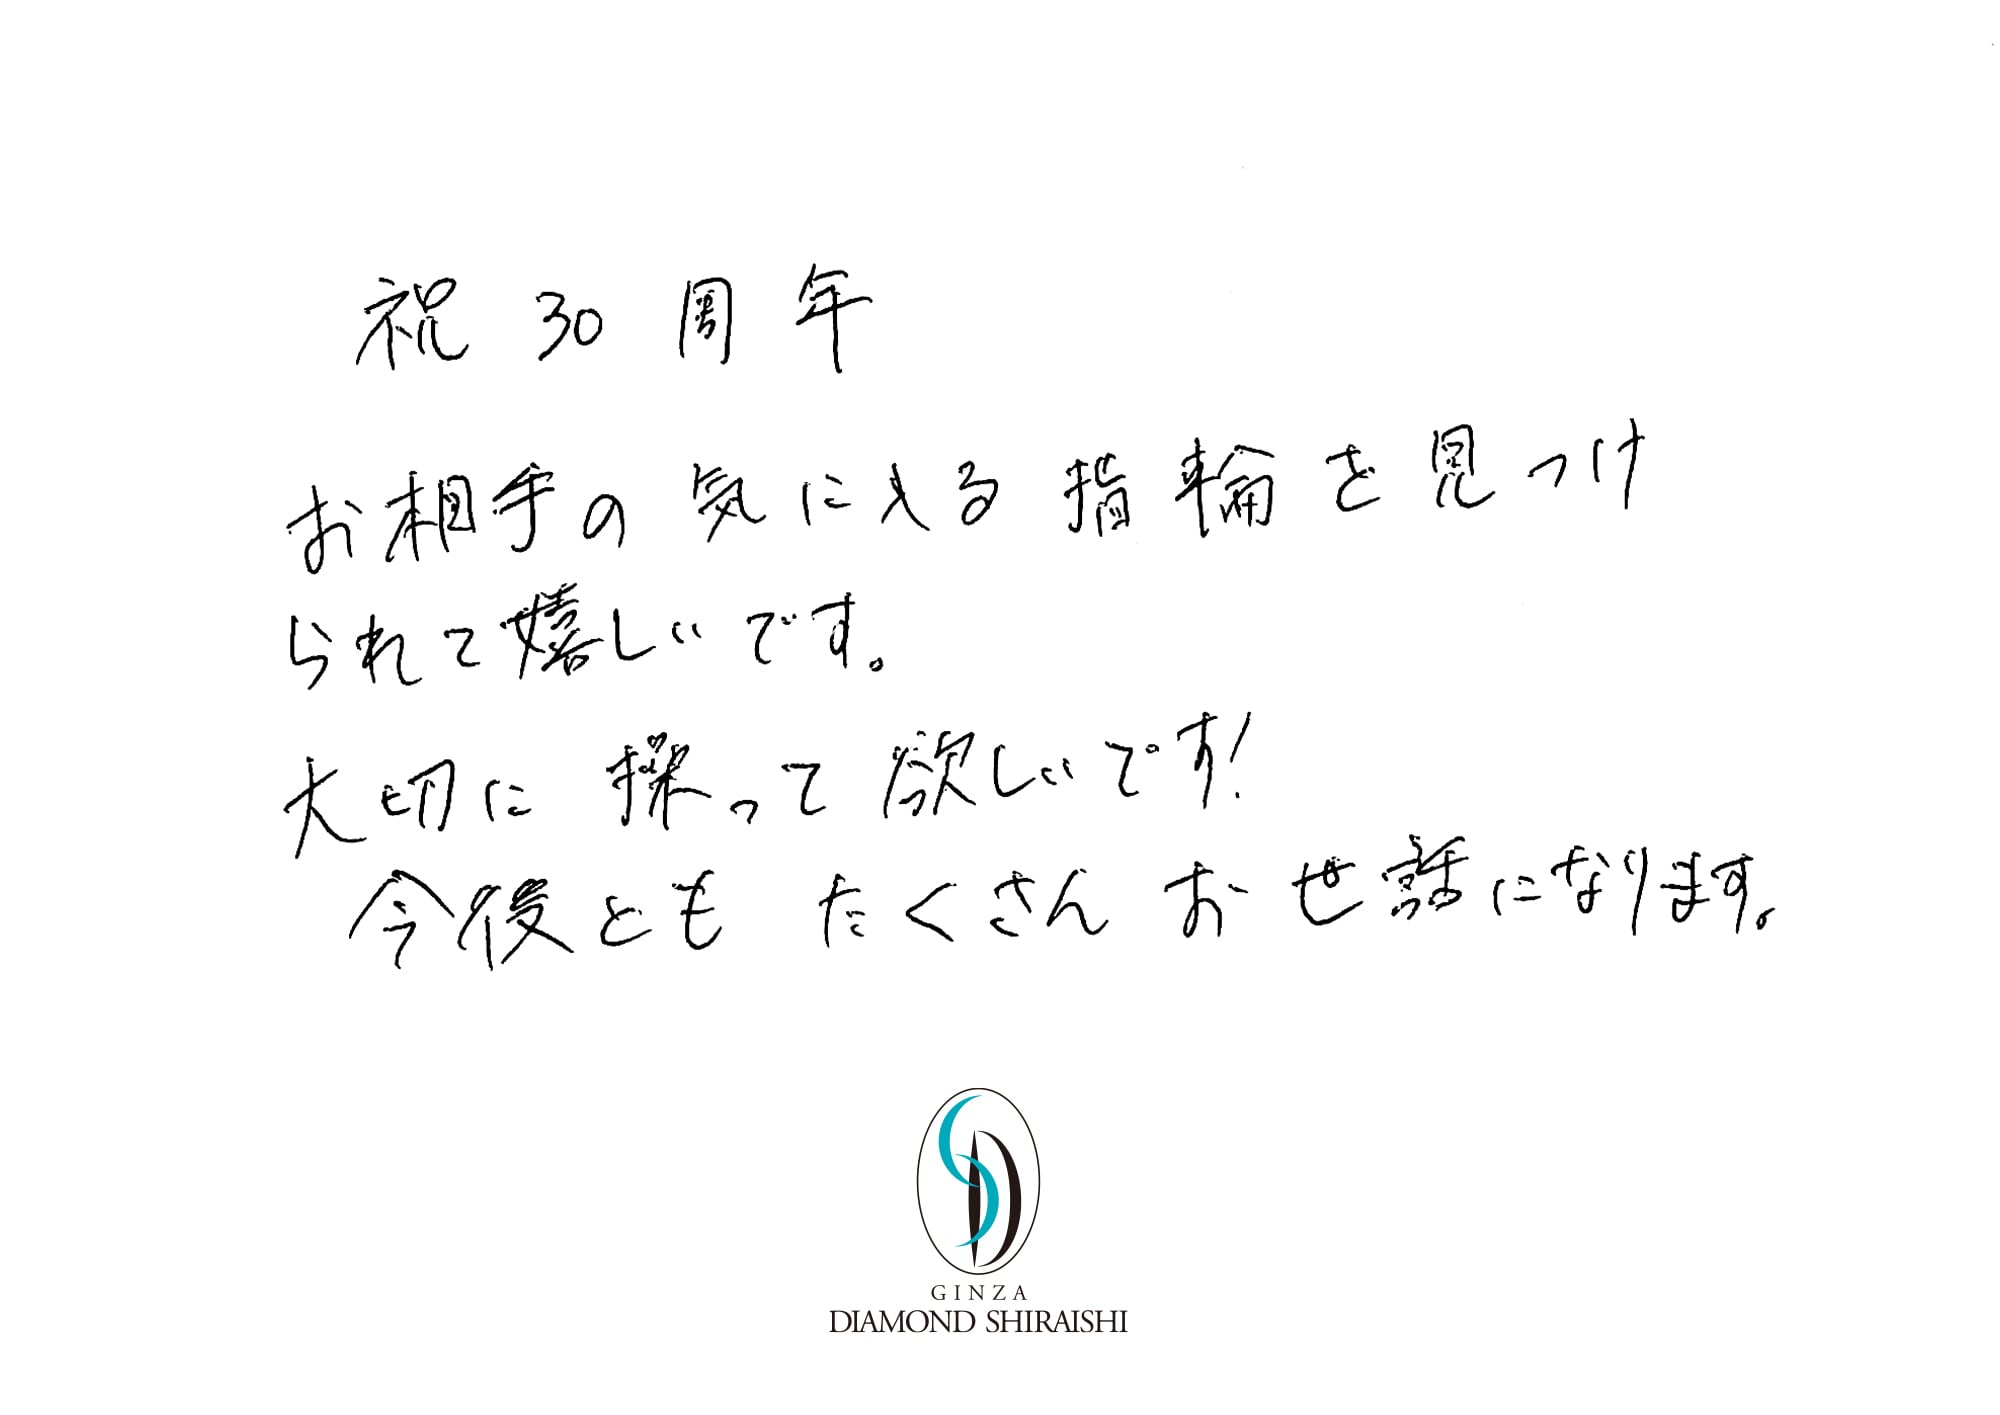 祝 30 周年
お相手の気に入る指輪を見つけ
られて嬉しいです。
大切に操って欲しいです!
今後とも たくさん お世話になります。
GINZA
DIAMOND SHIRAISHI